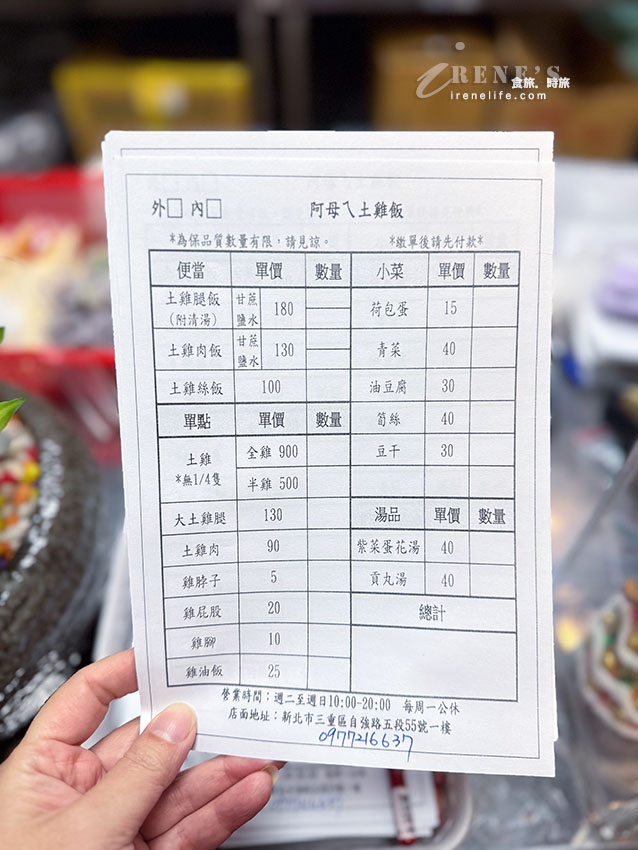 iRENE'S
食旅。時旅
irenelife.com
外□ 內□ 阿母ㄟ土雞飯
*為保品質數量有限,請見諒。 *繳單後請先付款*
便當 單價 數量
土雞腿飯 (附清湯) 甘蔗 鹽水 180
土雞肉飯 甘蔗 鹽水 130
土雞絲飯 100
單點 單價 數量
土雞 *無1/4隻 全雞 900
半雞 500
大土雞腿 130
土雞肉 90
雞脖子 5
雞屁股 20
雞腳 10
雞油飯 25
小菜 單價 數量
荷包蛋 15
青菜 40
油豆腐 30
筍絲 40
豆干 30
湯品 單價 數量
紫菜蛋花湯 40
貢丸湯 40
總計
營業時間:週二至週日10:00-20:00 每周一公休
店面地址:新北市三重區自強路五段55號一樓
0977216637